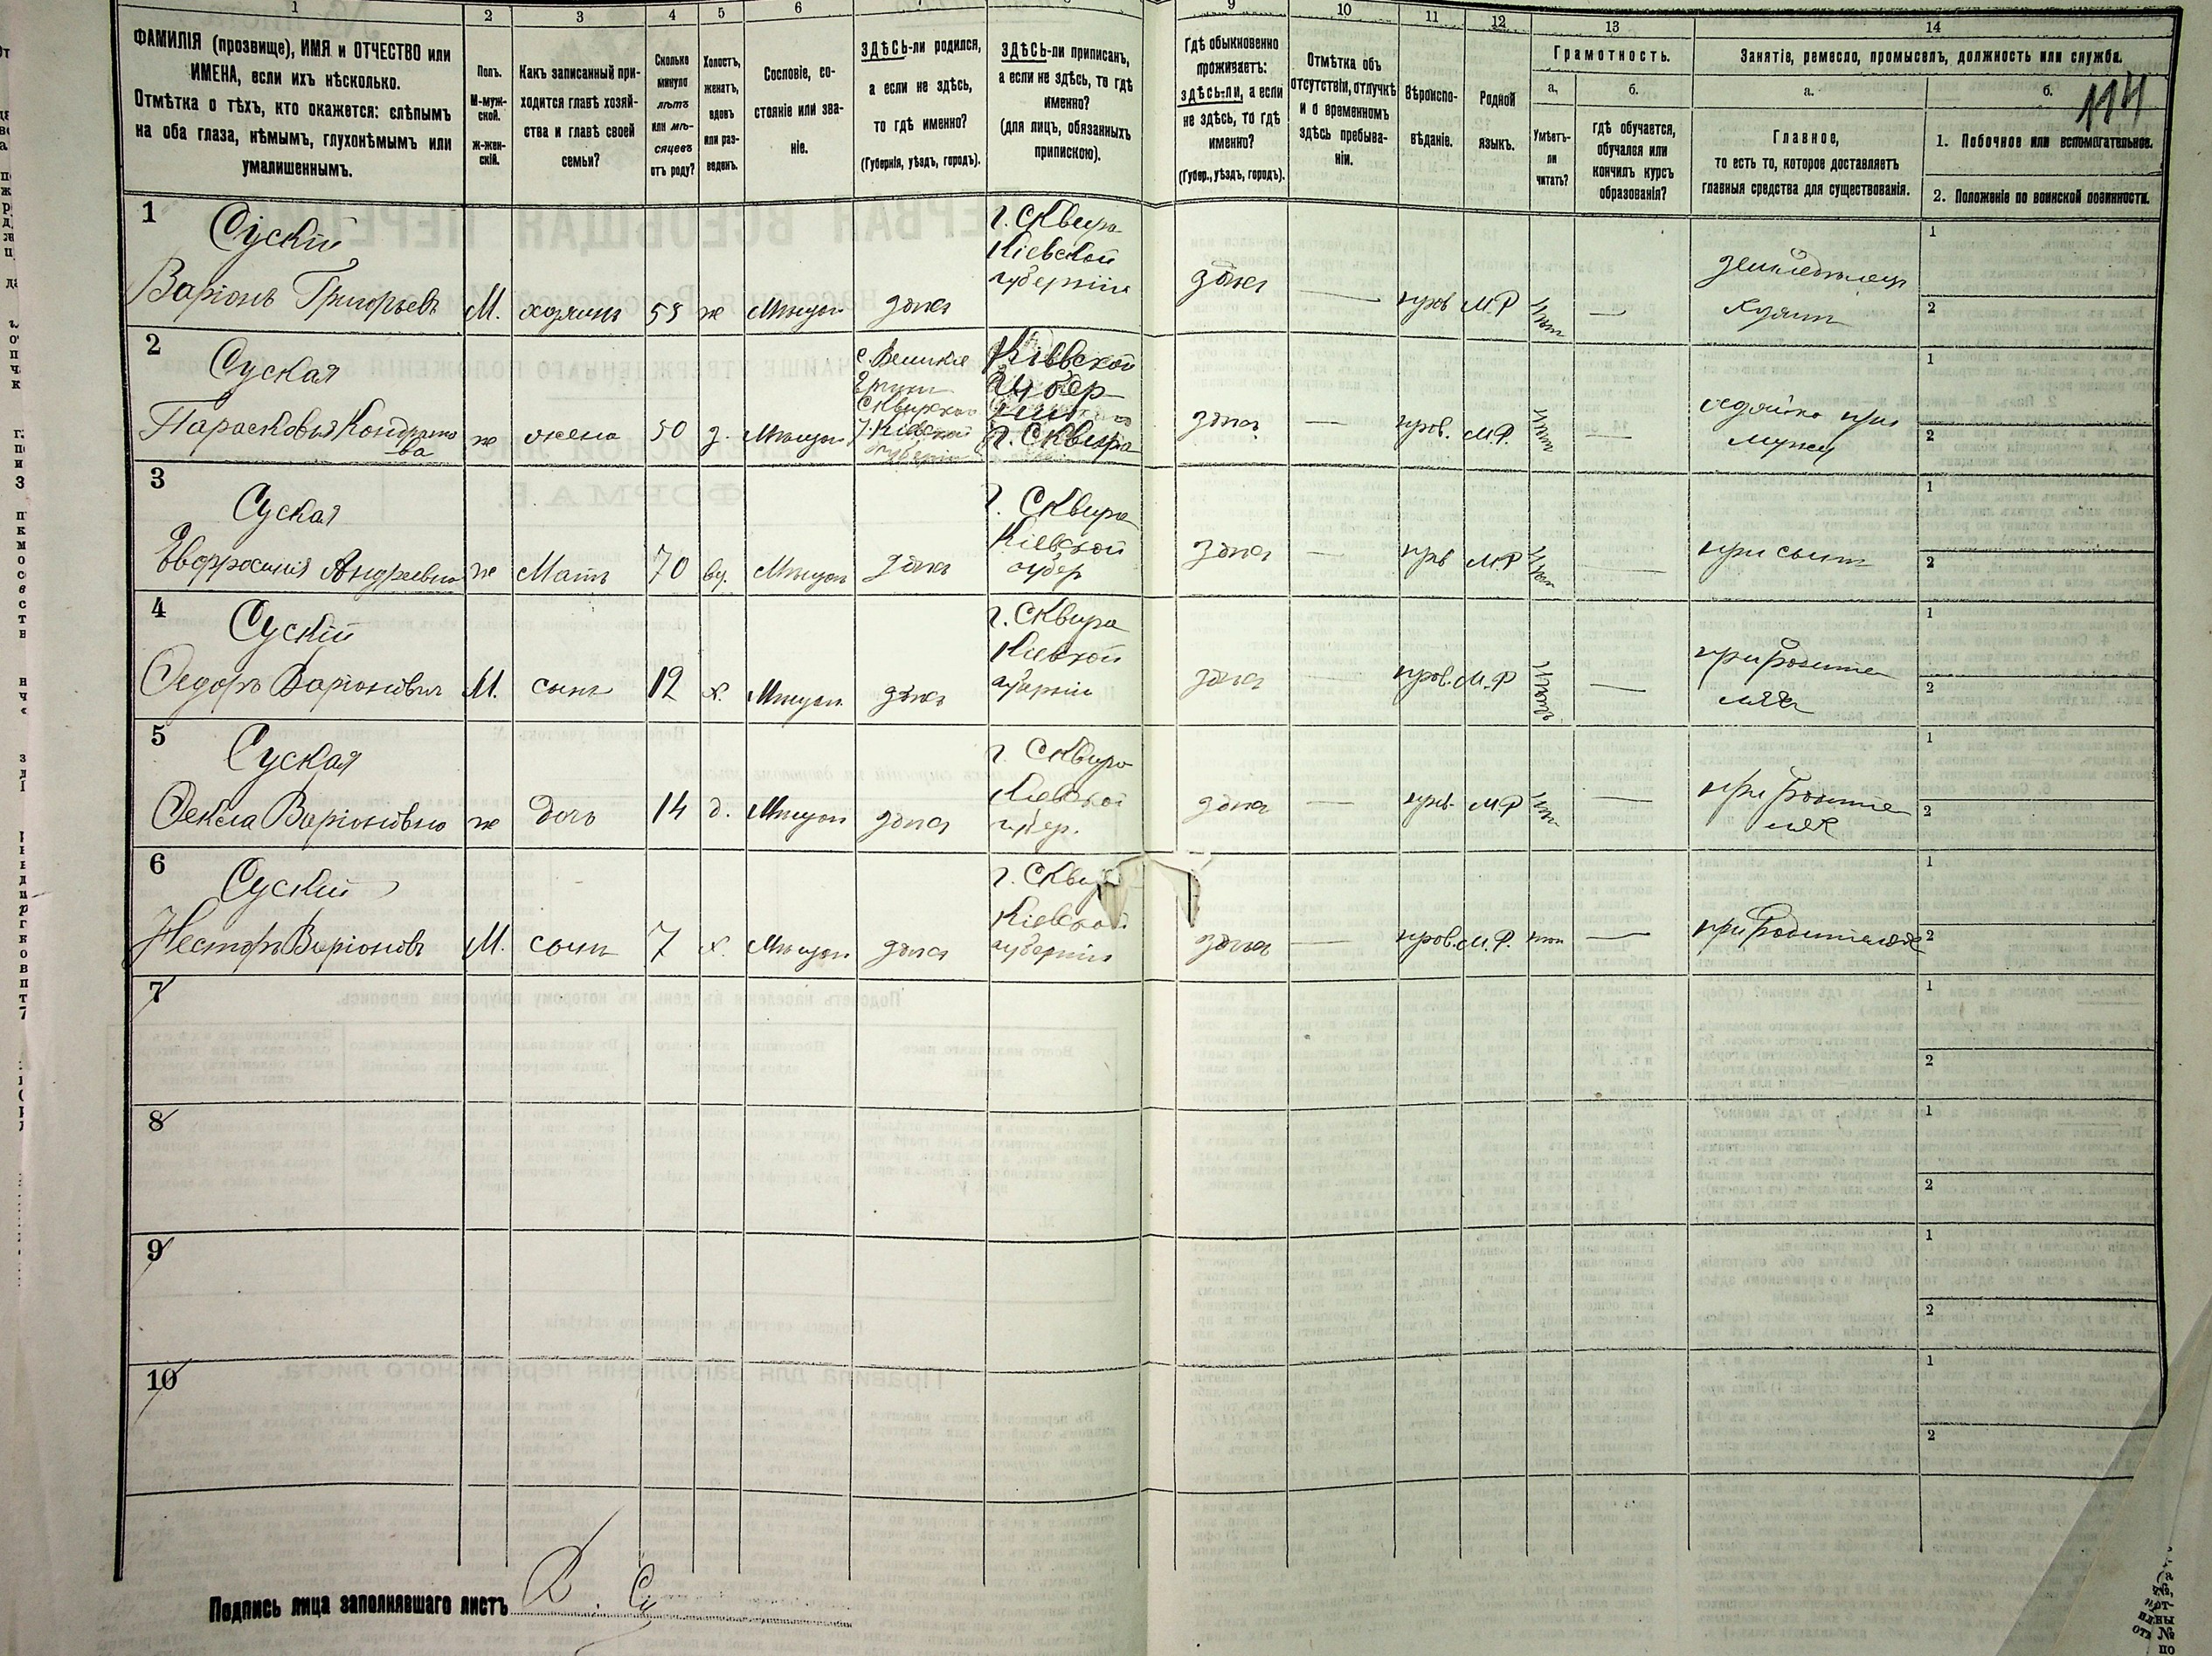 1 2 3 4 5 6 9 10 11 12 13 14
ФАМИЛІЯ (прозвище), ИМЯ и ОТЧЕСТВО или
ИМЕНА, если ихъ нѣсколько.
Отмѣтка о тѣхъ, кто окажется: слѣпымъ
на оба глаза, нѣмымъ, глухонѣмымъ или
умалишеннымъ.
Полъ.
М-муж-
ской.
ж-жен-
скій.
Какъ записанный при-
ходится главѣ хозяй-
ства и главѣ своей
семьи?
Сколько
минуло
лѣтъ
или мѣ-
сяцевъ
отъ роду?
Холостъ,
женатъ,
вдовъ
или раз-
веденъ.
Сословіе, со-
стояніе или зва-
ніе.
ЗДѢСЬ-ли родился,
а если не здѣсь,
то гдѣ именно?
(Губернія, уѣздъ, городъ).
ЗДѢСЬ-ли приписанъ,
а если не здѣсь, то гдѣ
именно?
(для лицъ, обязанныхъ
припискою).
Гдѣ обыкновенно
проживаетъ:
здѣсь-ли, а если
не здѣсь, то гдѣ
именно?
(Губер., уѣздъ, городъ).
Отмѣтка объ
отсутствіи, отлучкѣ
и о временномъ
здѣсь пребыва-
ніи.
Вѣроиспо-
вѣданіе.
Родной
языкъ.
Грамотность.
а.
Умѣетъ-
ли
читать?
б.
гдѣ обучается,
обучался или
кончилъ курсъ
образованія?
Занятіе, ремесло, промыселъ, должность или служба.
а.
Главное,
то есть то, которое доставляетъ
главныя средства для существованія.
б.
114
1. Побочное или вспомогательное.
2. Положеніе по воинской повинности.
1
Сускій
Варіонъ Григорьевъ
М. хозяинъ 55 ж Мѣщан здѣсь
г. Сквира
Кіевской
губерніи
здѣсь — прав М.Р нѣтъ —
земледѣлецъ
хозяин
1
2
2
Суская
Парасковья Кондрато
ва
ж жена 50 з. Мѣщан
с. Великіе
Сквирскаго
у. Кіевской
губерніи
Кіевской
Губер
г. Сквира
здѣсь — прав. М.Р. нѣтъ —
хозяйка при
мужу
1
2
3
Суская
Евфросинія Андреевна
ж Мать 70 вд. Мѣщан здѣсь
г. Сквира
Кіевской
губер
здѣсь — прв М.Р нѣтъ —
при сынѣ
1
2
4
Сускій
Федоръ Варіоновичъ
М. сынъ 12 х. Мѣщан. здѣсь
г. Сквира
Кіевской
губерніи
здѣсь — прав. М.Р —
при родите
ляхъ
1
2
5
Суская
Фекла Варіоновна
ж Дочь 14 д. Мѣщан здѣсь
г. Сквира
Кіевской
губер.
здѣсь — прав. М.Р нѣтъ —
при родите
лях
1
2
6
Сускій
Несторъ Варіоновъ
М. сынъ 7 х. Мѣщан здѣсь
г. Сквира
Кіевской
губерніи
здѣсь — прав. М.Р. нѣт —
при родителях
1
2
7
1
2
8
1
2
9
1
2
10
1
2
Подпись лица заполнявшаго листъ В. Су